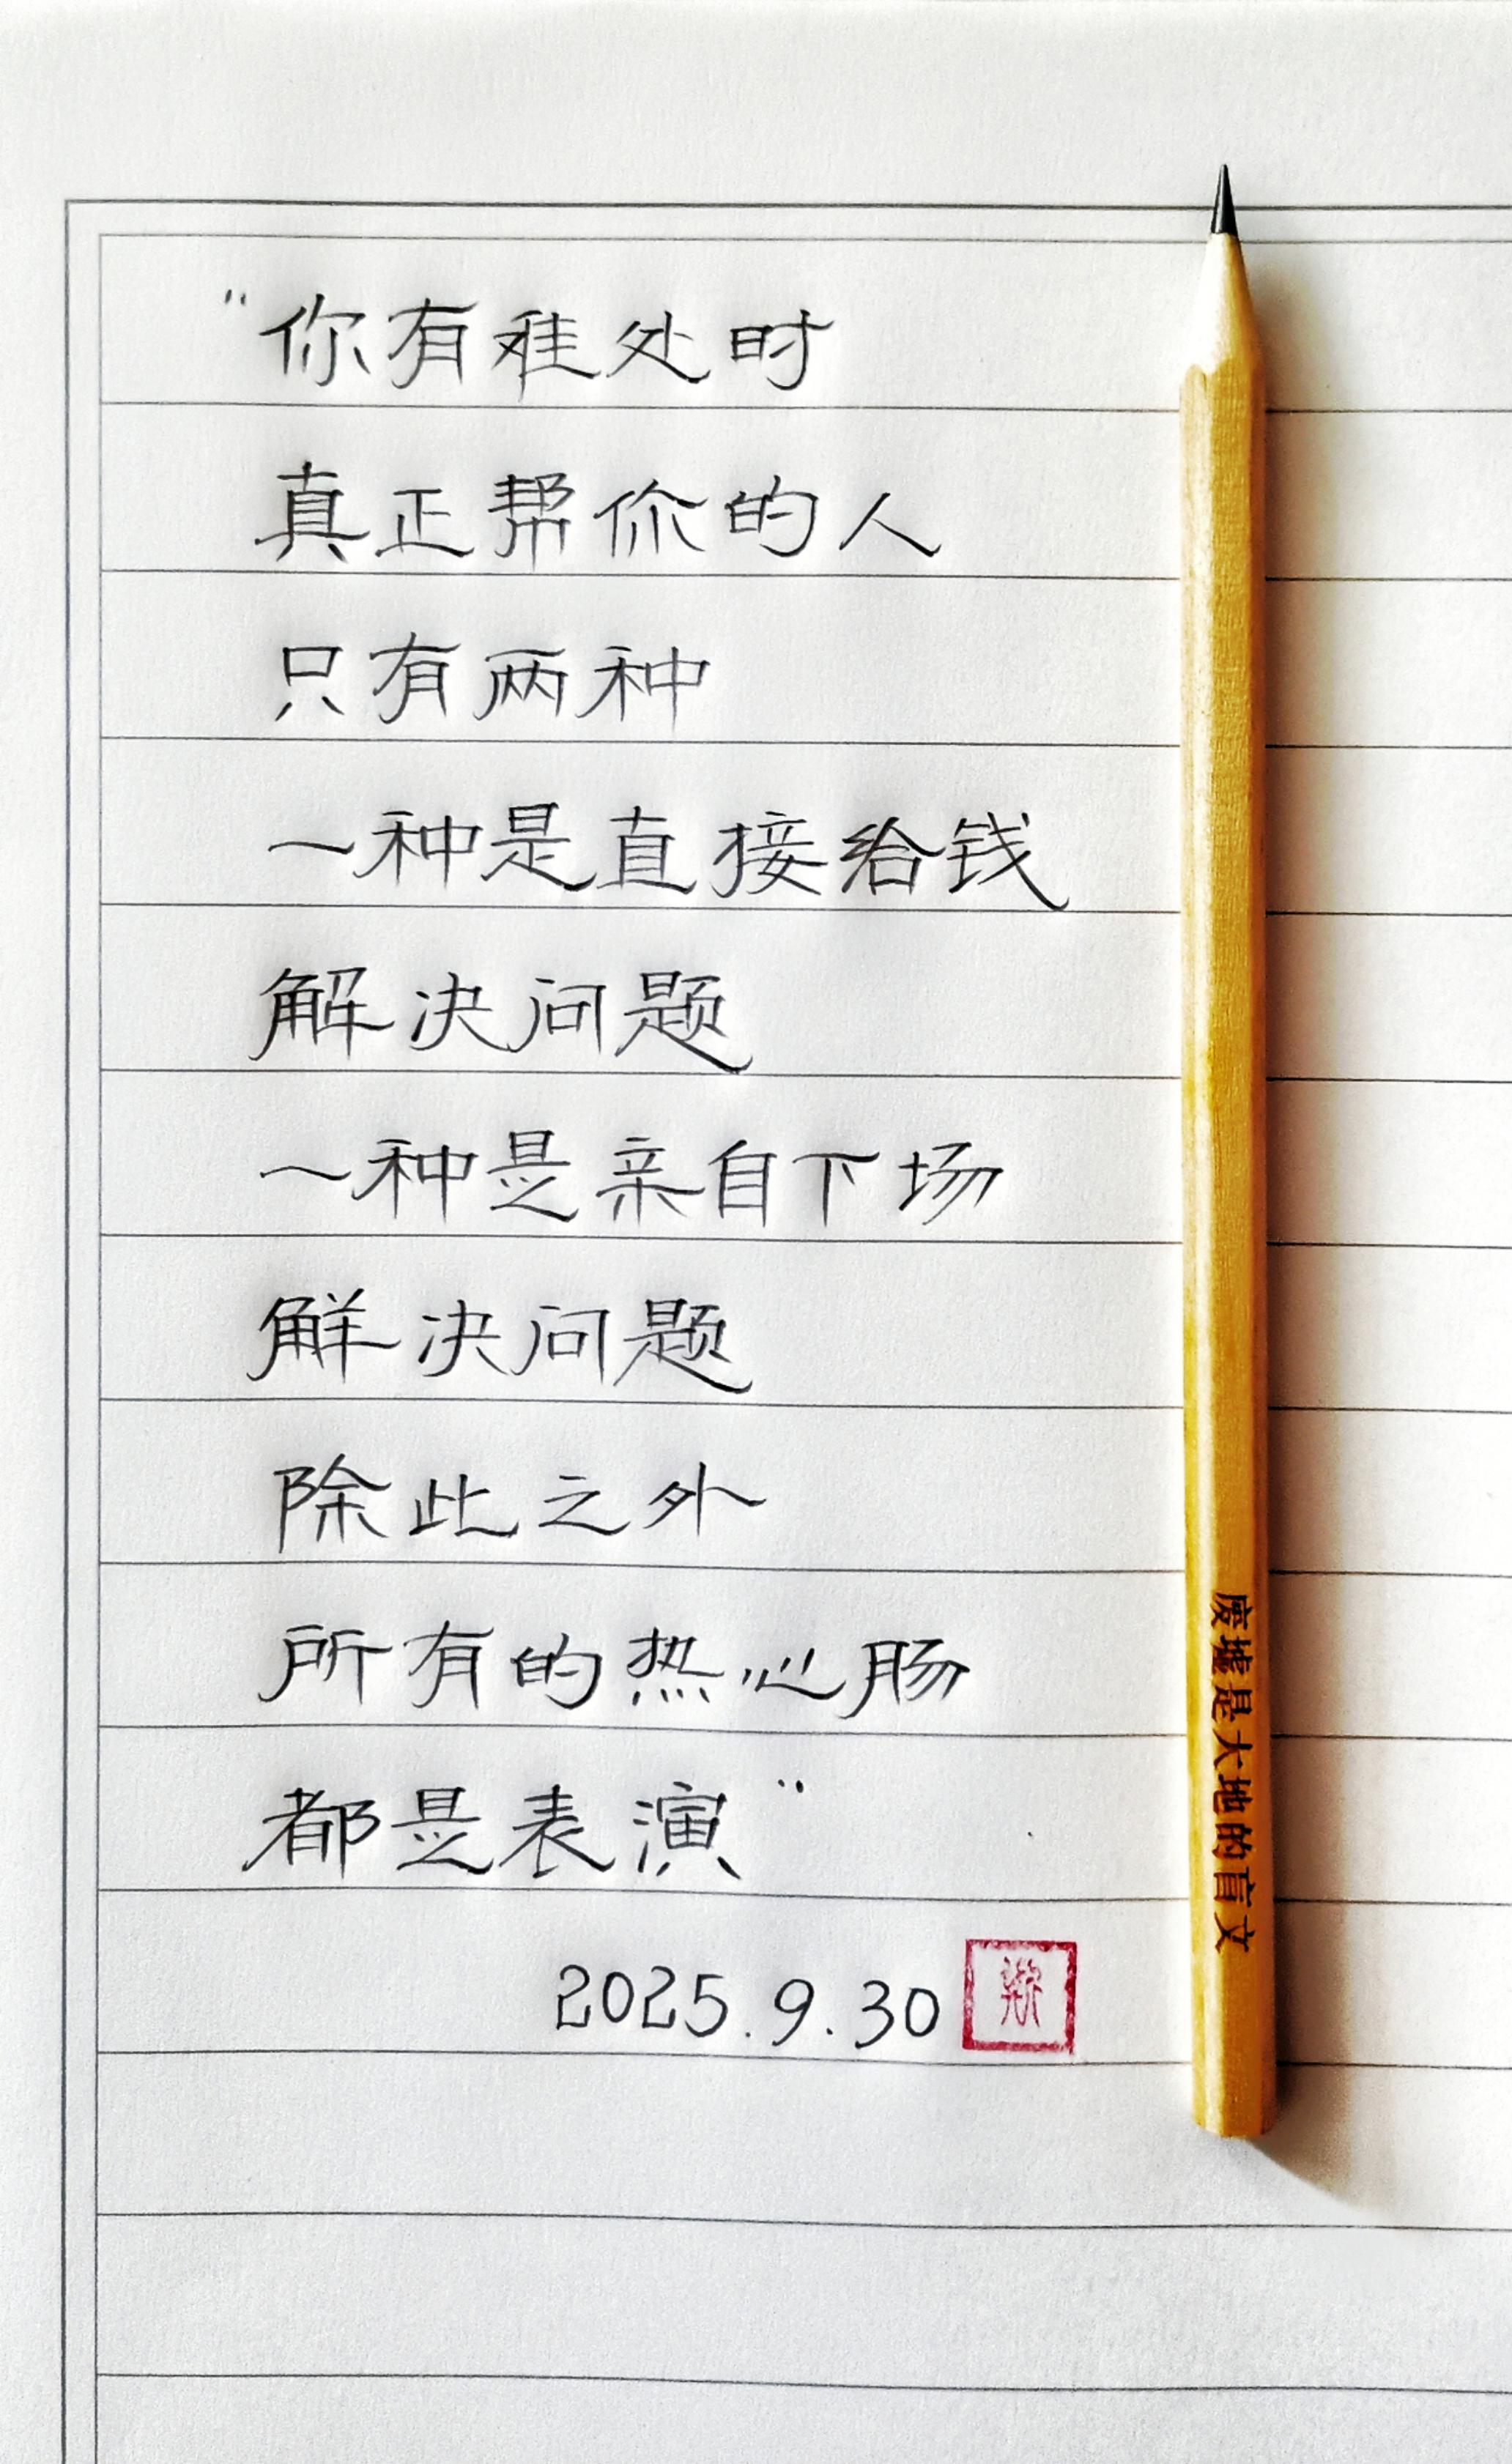 “你有难处时
真正帮你的人
只有两种
一种是直接给钱
解决问题
一种是亲自下场
解决问题
除此之外
所有的热心肠
都是表演”
2025.9.30
废墟是大地的盲文